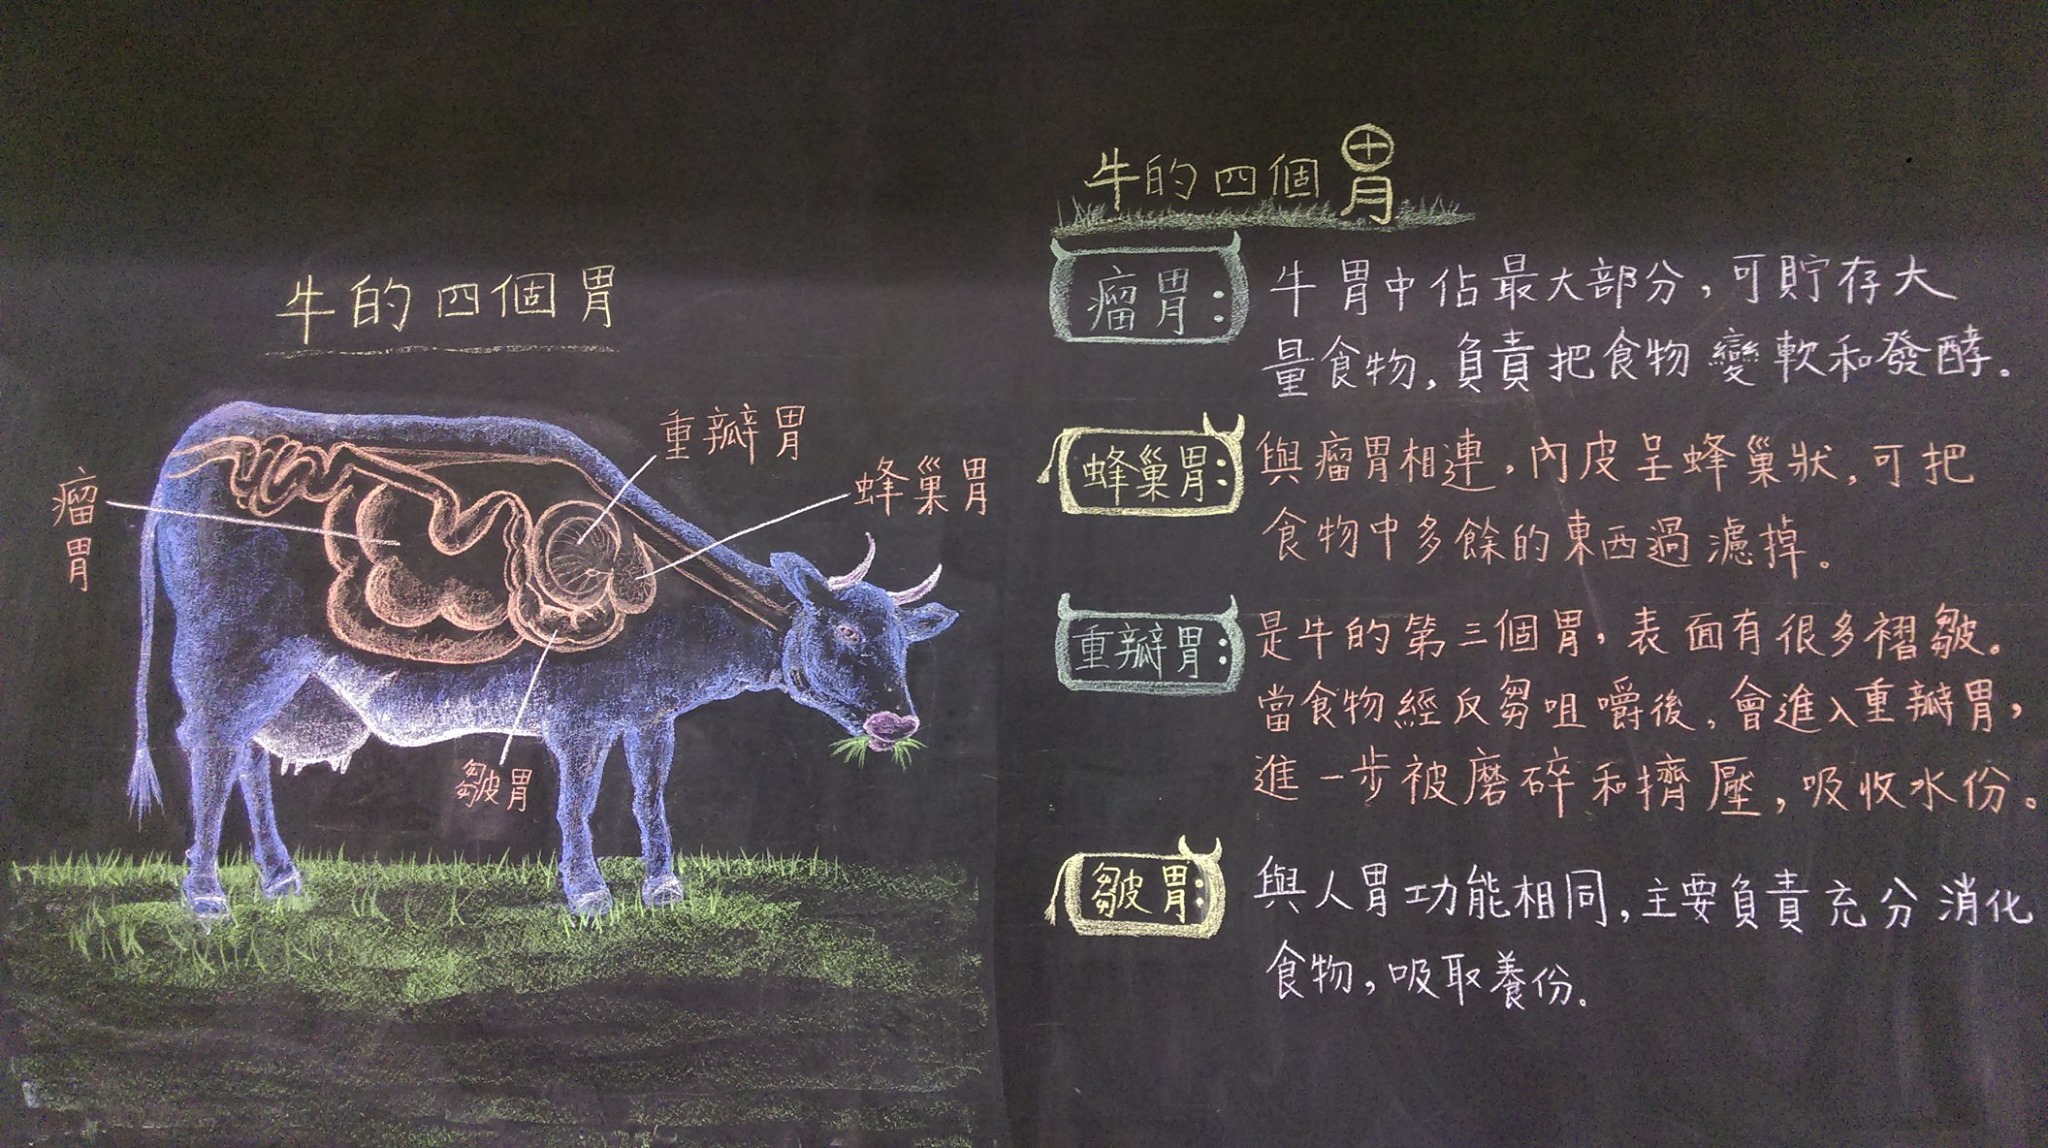 牛的四個胃
瘤胃
重瓣胃
蜂巢胃
皺胃
牛的四個胃
瘤胃：牛胃中佔最大部分，可貯存大
量食物，負責把食物變軟和發酵。
蜂巢胃：與瘤胃相連，內皮呈蜂巢狀，可把
食物中多餘的東西過濾掉。
重瓣胃：是牛的第三個胃，表面有很多褶皺。
當食物經反芻咀嚼後，會進入重瓣胃，
進一步被磨碎和擠壓，吸收水份。
皺胃：與人胃功能相同，主要負責充分消化
食物，吸取養份。